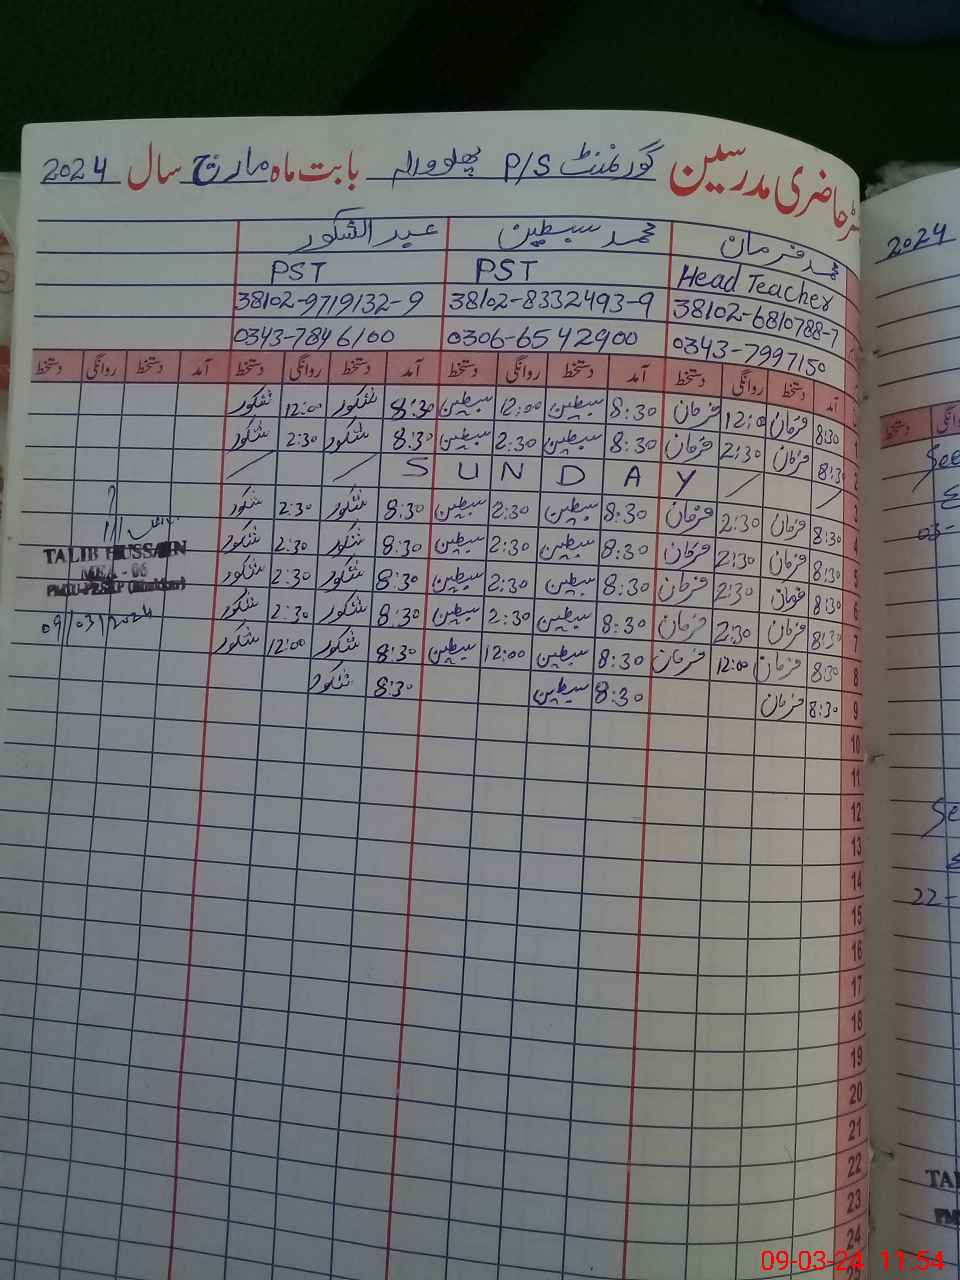 رجسٹر حاضری مدرسین گورنمنٹ P/S پھلووالہ بابت ماہ مارچ سال 2024
محمد فرمان محمد سبطین عبدالشکور
Head Teacher PST PST
38102-6810788-7 38102-8332493-9 38102-9719132-9
0343-7997150 0306-6542900 0343-7846100
آمد دستخط روانگی دستخط آمد دستخط روانگی دستخط آمد دستخط روانگی دستخط آمد دستخط روانگی دستخط
1 8:30 فرمان 12:00 فرمان 8:30 سبطین 12:00 سبطین 8:30 شکور 12:00 شکور
2 8:30 فرمان 2:30 فرمان 8:30 سبطین 2:30 سبطین 8:30 شکور 2:30 شکور
3 / / S U N D A Y / /
4 8:30 فرمان 2:30 فرمان 8:30 سبطین 2:30 سبطین 8:30 شکور 2:30 شکور
5 8:30 فرمان 2:30 فرمان 8:30 سبطین 2:30 سبطین 8:30 شکور 2:30 شکور
6 8:30 فرمان 2:30 فرمان 8:30 سبطین 2:30 سبطین 8:30 شکور 2:30 شکور
7 8:30 فرمان 2:30 فرمان 8:30 سبطین 2:30 سبطین 8:30 شکور 2:30 شکور
8 8:30 فرمان 12:00 فرمان 8:30 سبطین 12:00 سبطین 8:30 شکور 12:00 شکور
9 8:30 فرمان 8:30 سبطین 8:30 شکور
10
11
12
13
14
15
16
17
18
19
20
21
22
23
24
25
TALIB HUSSAIN
MEA - 06
09/03/2024
2024
دستخط روانگی
See
03-
Se
22-
TAL
09-03-24 11:54